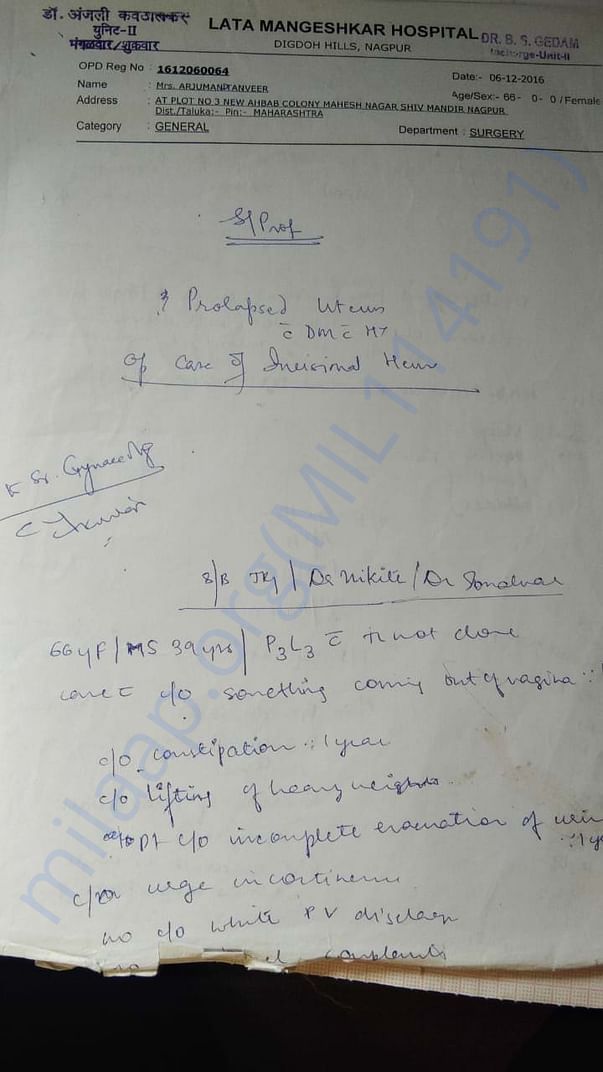 डॉ. अंजली कवठाळकर
युनिट-II
मंगळवार/शुक्रवार
LATA MANGESHKAR HOSPITAL
DIGDOH HILLS, NAGPUR
DR. B. S. GEDAM
Incharge-Unit-II
OPD Reg No : 1612060064
Date:- 06-12-2016
Name : Mrs. ARJUMANDTANVEER
Age/Sex:- 66- 0- 0 / Female
Address : AT PLOT NO 3 NEW AHBAB COLONY MAHESH NAGAR SHIV MANDIR NAGPUR
Dist./Taluka:- Pin:- MAHARASHTRA
Category : GENERAL
Department : SURGERY
S/Prof
Prolapsed Uterus
c̄ DM c̄ HT
Op Case of Incisional
Sr. Gynaec
S/B JR1 / Dr Nikita / Dr
66 yF / MS 39 yrs / P3L3 c̄ not done
came c̄ c/o something coming out of vagina
c/o constipation :: 1 year
c/o lifting of heavy weights
pt c/o incomplete evacuation of
c/o urge incontinence
no c/o white PV discharge
complaints
milaap.org(MIL114191)